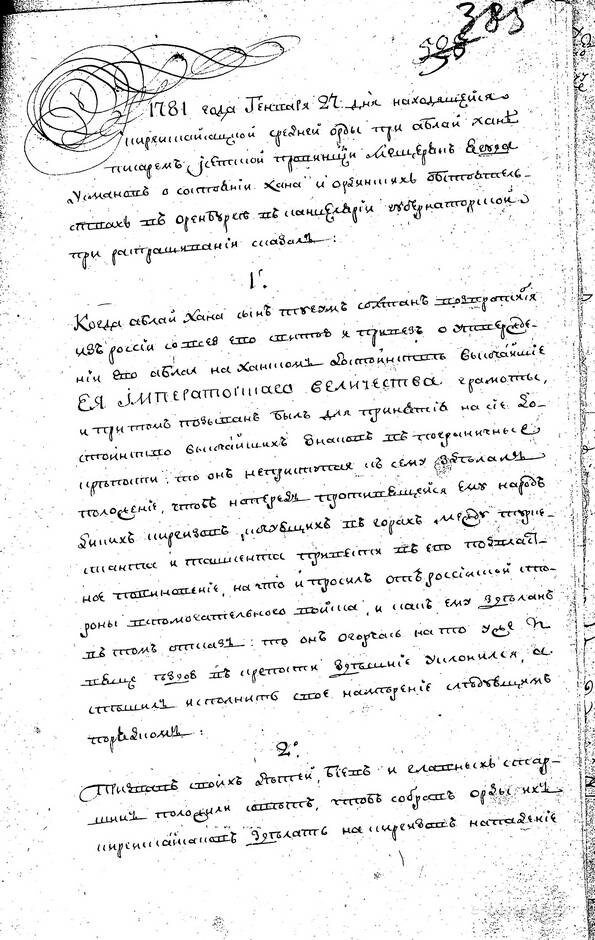 385
50
50
1781 года Генваря 27 дня находящейся
киргискайсацкой средней орды при аблай Ханѣ
писаремъ, исетской провинціи Мещерякъ Ягуда
Усмановъ о состояніи хана и ординскихъ обстоятель-
ствахъ въ оренбургѣ въ канцеляріи губернаторской
при распрашиваніи сказалъ:
1е.
Когда аблай Хана сынъ тугумъ солтанъ возвратился
изъ россіи со всею его свитою и привезъ о утвержде-
ніи его аблая на ханскомъ достоинствѣ высочайшіе
ЕЯ ІМПЕРАТОРСКАГО ВЕЛИЧЕСТВА грамоты,
и притомъ позыванъ былъ для принятія на сіе до-
стоинство высочайшихъ знаковъ въ пограничные
крѣпости: то онъ неприступая къ сему здѣлалъ
положеніе, чтобъ напередъ противящейся ему народъ
дикихъ киргизовъ, кочующихъ въ горахъ между турке-
станта и ташкента привести въ его подвласт-
ное повиновеніе, на что и просилъ отъ россійской сто-
роны вспомогательного войска, и какъ ему здѣланъ
въ томъ отказъ: то онъ огорчась на то уже и
вовще поѣздъ въ крепости здѣшніе уклонился, а
сталъ исполнить свое намѣреніе слѣдующимъ
порядкомъ:
2е.
Призвавъ своихъ дѣтей, біевъ и главныхъ стар-
шинъ положили совѣтъ, чтобъ собравъ орды ихъ
киргискайсаковъ здѣлать на киргизовъ нападеніе